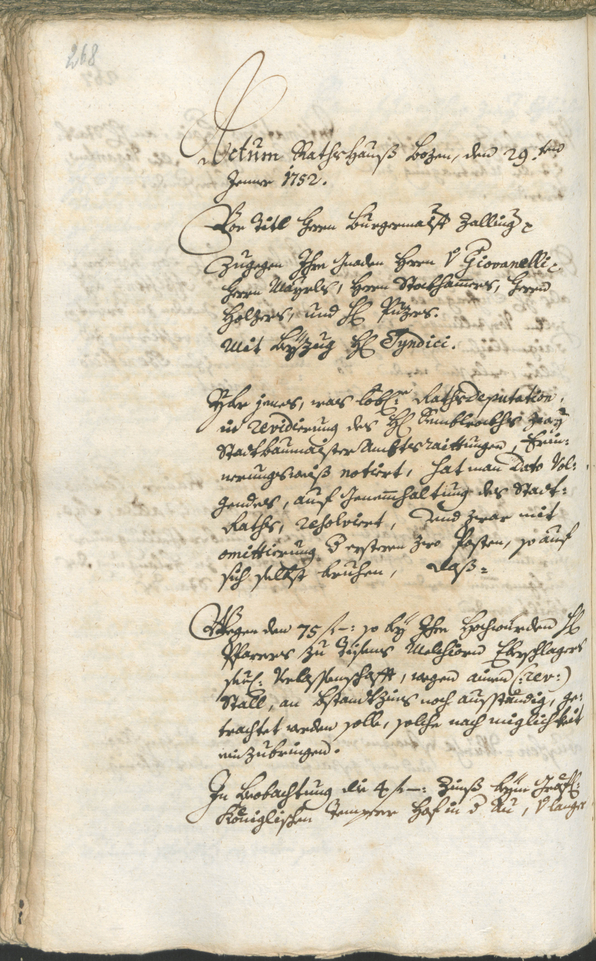 268
Actum Rathshauß Bozen, den 29.ten
Jener 1752.
Vor Titl Herrn Burgermaist Zalling
Zugegen Ihro Gnaden Herrn V Giovanelli
Herrn Mayrls, Herrn Stokhamers, Herrn
Holzers, und H Puzers.
Mit Beyzug H Syndici.
Yber jenes, was lobl: Rathsdeputation,
in revidierung des H zway
Stattbaumaister Ambtsraittungen, Erin-
nerungsweiß notiert, hat man dato Vol-
gendes, auf Genemhaltung des Statt-
Raths, resolviert, Und zwar mit
omittierung d ersteren zwo Posten, so auf
sich selbst beruhen, daß=
Wegen den 75 f -: so bey Ihro Hochwürden H
Pfarrers zu Tisens Melchiorn Eberschlagers
seel: Verlassenschafft, wegen ainen (:rev:)
Stall, an bstandtzins noch ausständig, ge-
trachtet werden solle, solche nach möglichkeit
einzubringen.
In Beobachtung die 4 f -: Zinß beym Gräfl:
Königlischen Hof in d Au, V langer